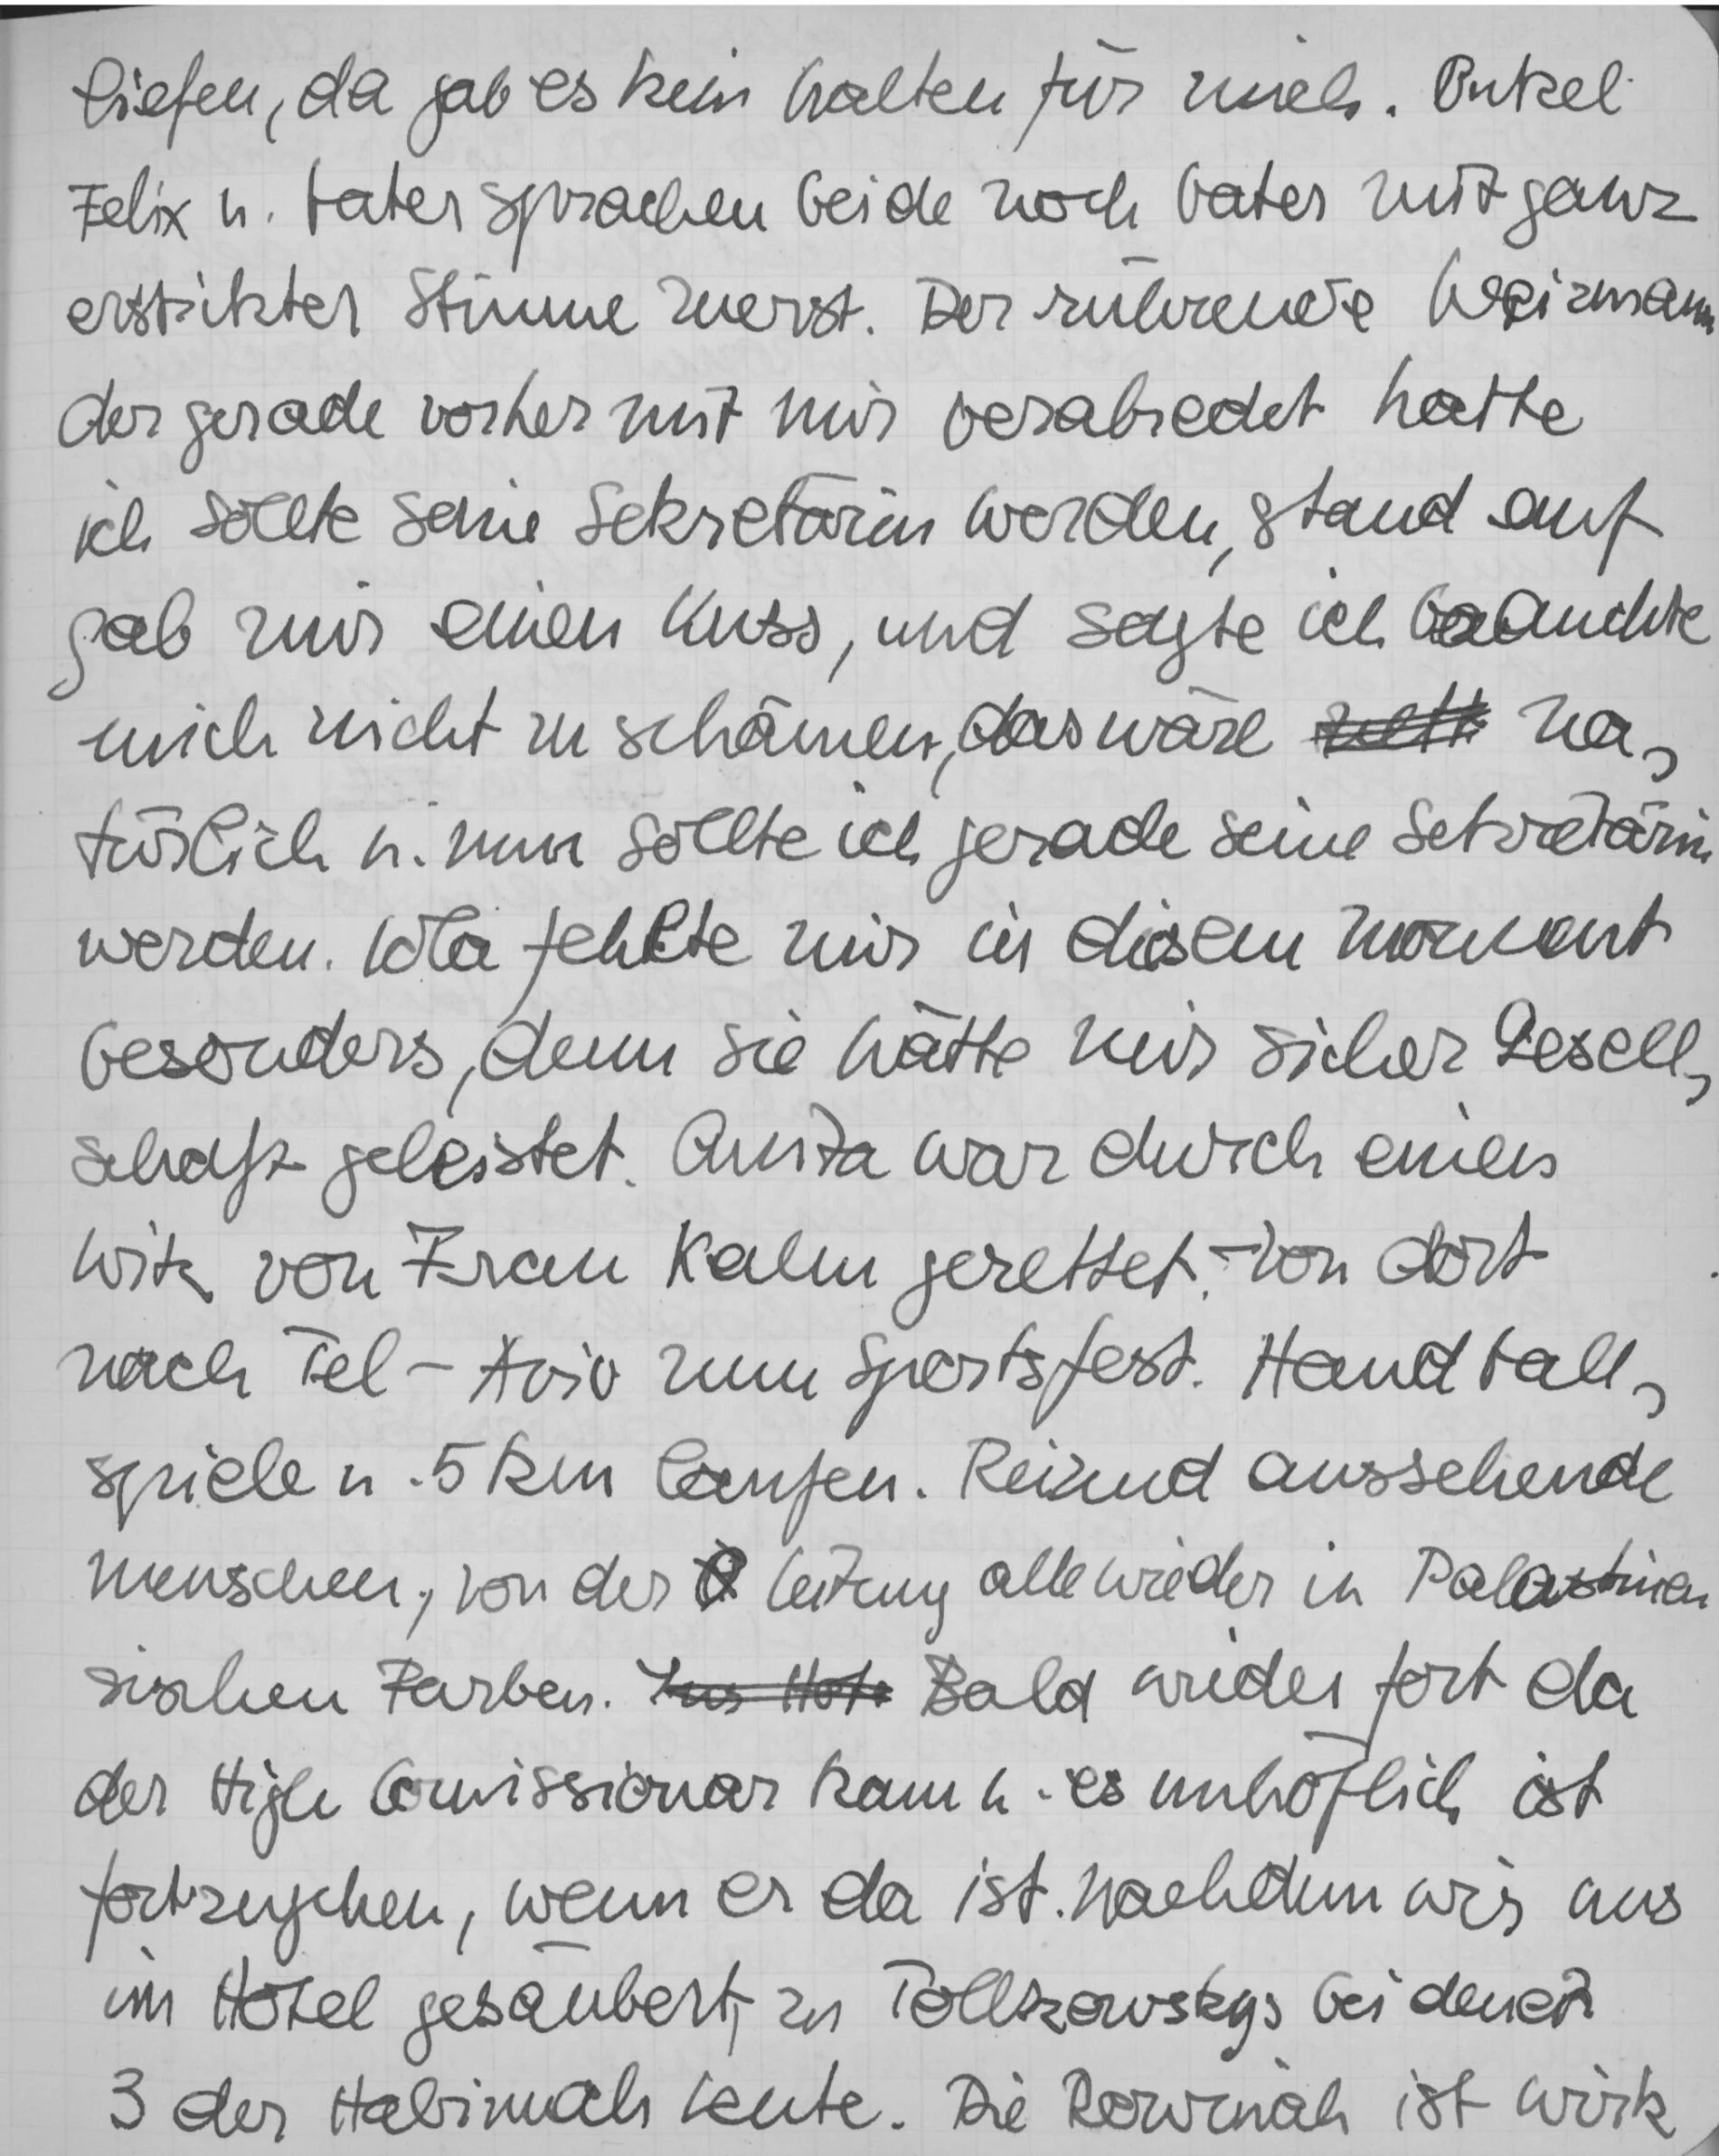 liefen, da gab es kein halten für mich. Onkel
Felix u. Vater sprachen beide noch Vater mit ganz
erstikter Stimme zuerst. Der rührende Weizmann
der gerade vorher mit mir verabredet hatte
ich sollte seine Sekretärin werden, stand auf
gab mir einen Kuss, und sagte ich brauchte
mich nicht zu schämen, das wäre na,
türlich u. nun sollte ich gerade seine Sekretärin
werden. Lola fehlte mir in diesem Moment
besonders, denn sie hätte mir sicher Gesell,
schaft geleistet. Anita war durch einen
Witz von Frau Kahn gerettet. – Von dort
nach Tel-Aviv zum Sportsfest. Handball,
spiele u. 5 km laufen. Reizend aussehende
Menschen, von der Leitung alle wieder in Palastinen
sischen Farben. Bald wieder fort da
der High Comissionar kam u. es unhöflich ist
fortzugehen, wenn er da ist. Nachdem wir uns
im Hotel gesäubert, zu Tollkowskys bei denen
3 der Habimah Leute. Die Rowinah ist wirk